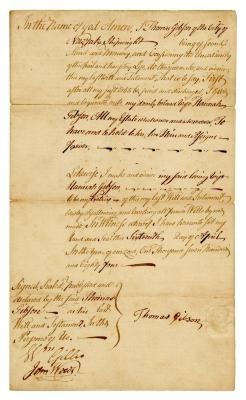 In the Name of God Amen, I Thomas Gibson of the City of
New York Shipwright being of sound
Mind and Memory and Considering the Uncertainty
of this frail and transitory Life, do therefore make and
this my last Will and Testament, That is to say, First
after all my just debts be paid and discharged, I
and bequeath unto my lovely beloved Wife Hannah
Gibson All my Estate whatsoever and wheresoever To
have and to hold to her Heirs and Assigns
forever
Likewise I make and my said loving Wife
Hannah Gibson
to be my of this my last Will and Testament
hereby all former Wills by me
made In Witness whereof I have hereunto set my
hand and Seal this Sixteenth Day of April
In the Year of our Lord One Thousand Seven Hundred
and Eighty Four
Signed, Sealed, published and
declared by the said Thomas
Gibson as his last
Will and Testament, In the
Presence of Us
Thomas Gibson
Wm Gillis
John Woods